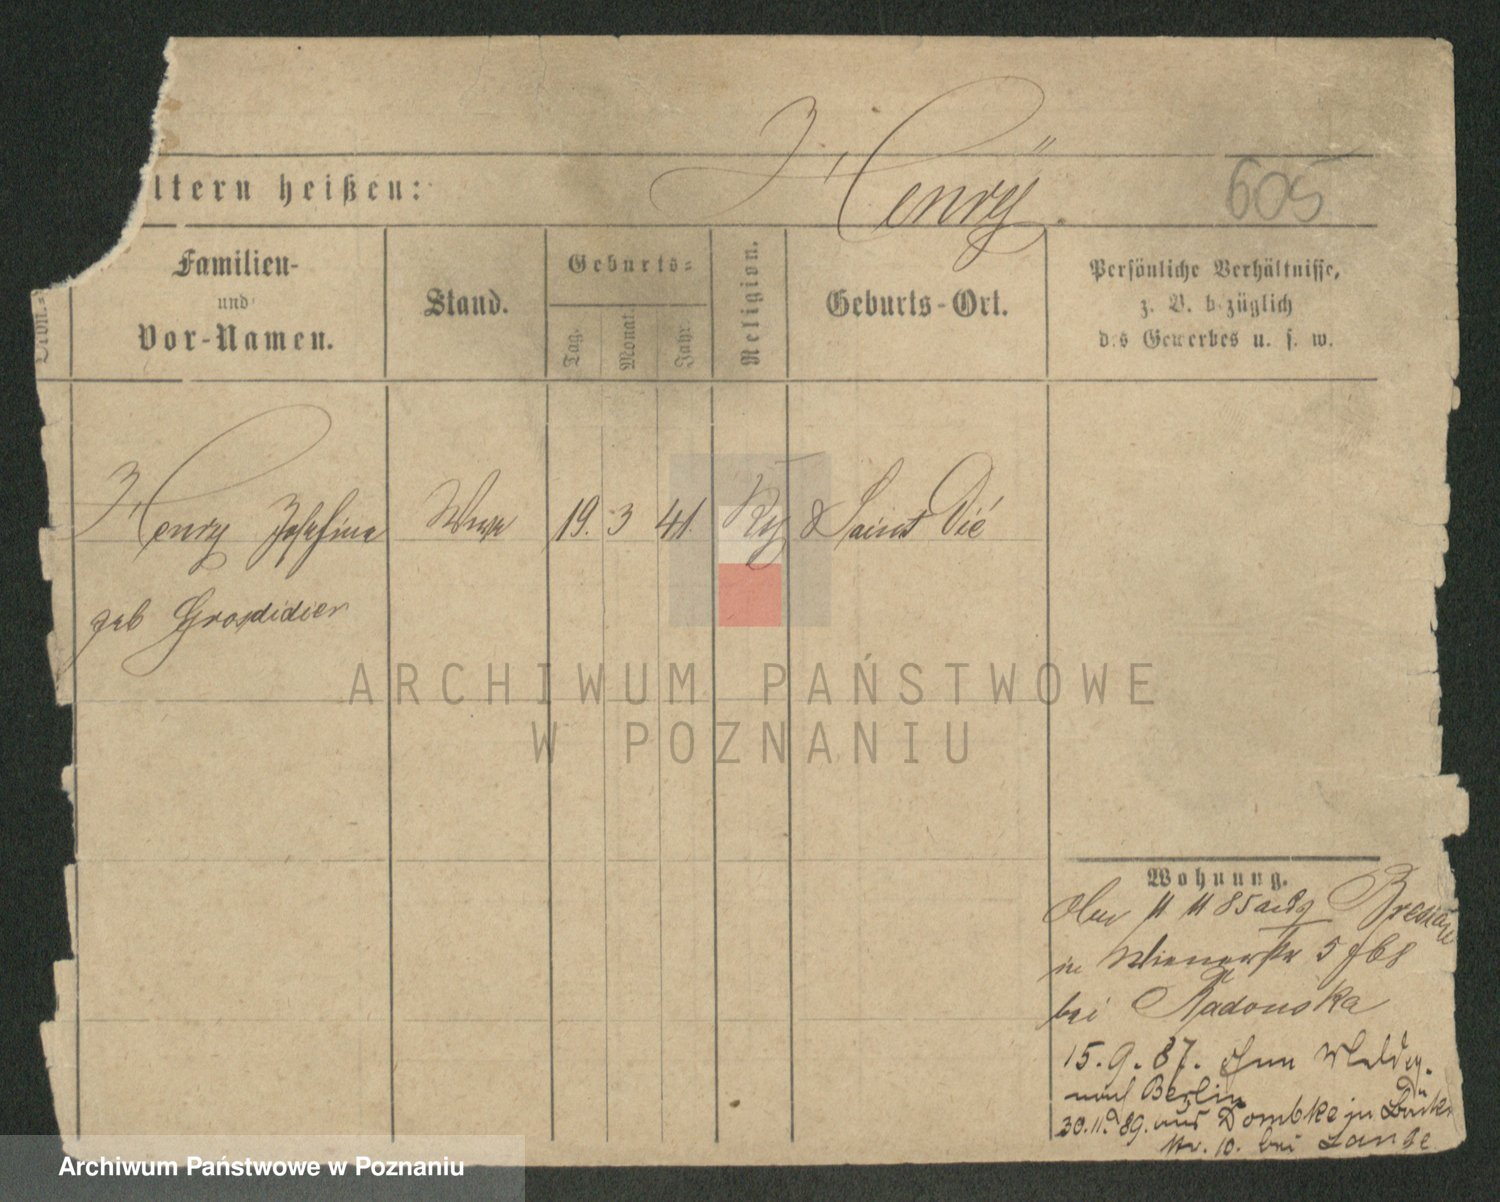 Henry
605
ltern heißen:
Familien-
und
Vor-Namen.
Stand.
Geburts-
Tag.
Monat.
Jahr.
Religion.
Geburts-Ort.
Persönliche Verhältnisse,
z. B. bezüglich
des Gewerbes u. s. w.
Henry Josefina
Wwe
19. 3 41.
Saint Dié
geb Grosdidier
ARCHIWUM PAŃSTWOWE
W POZNANIU
Wohnung.
11 11 85
in Wienerstr 5
bei Radonska
15.9.87. ohne Meldg.
nach Berlin
30.11.89. aus Dombke in
Nr. 10. bei Lange
Archiwum Państwowe w Poznaniu